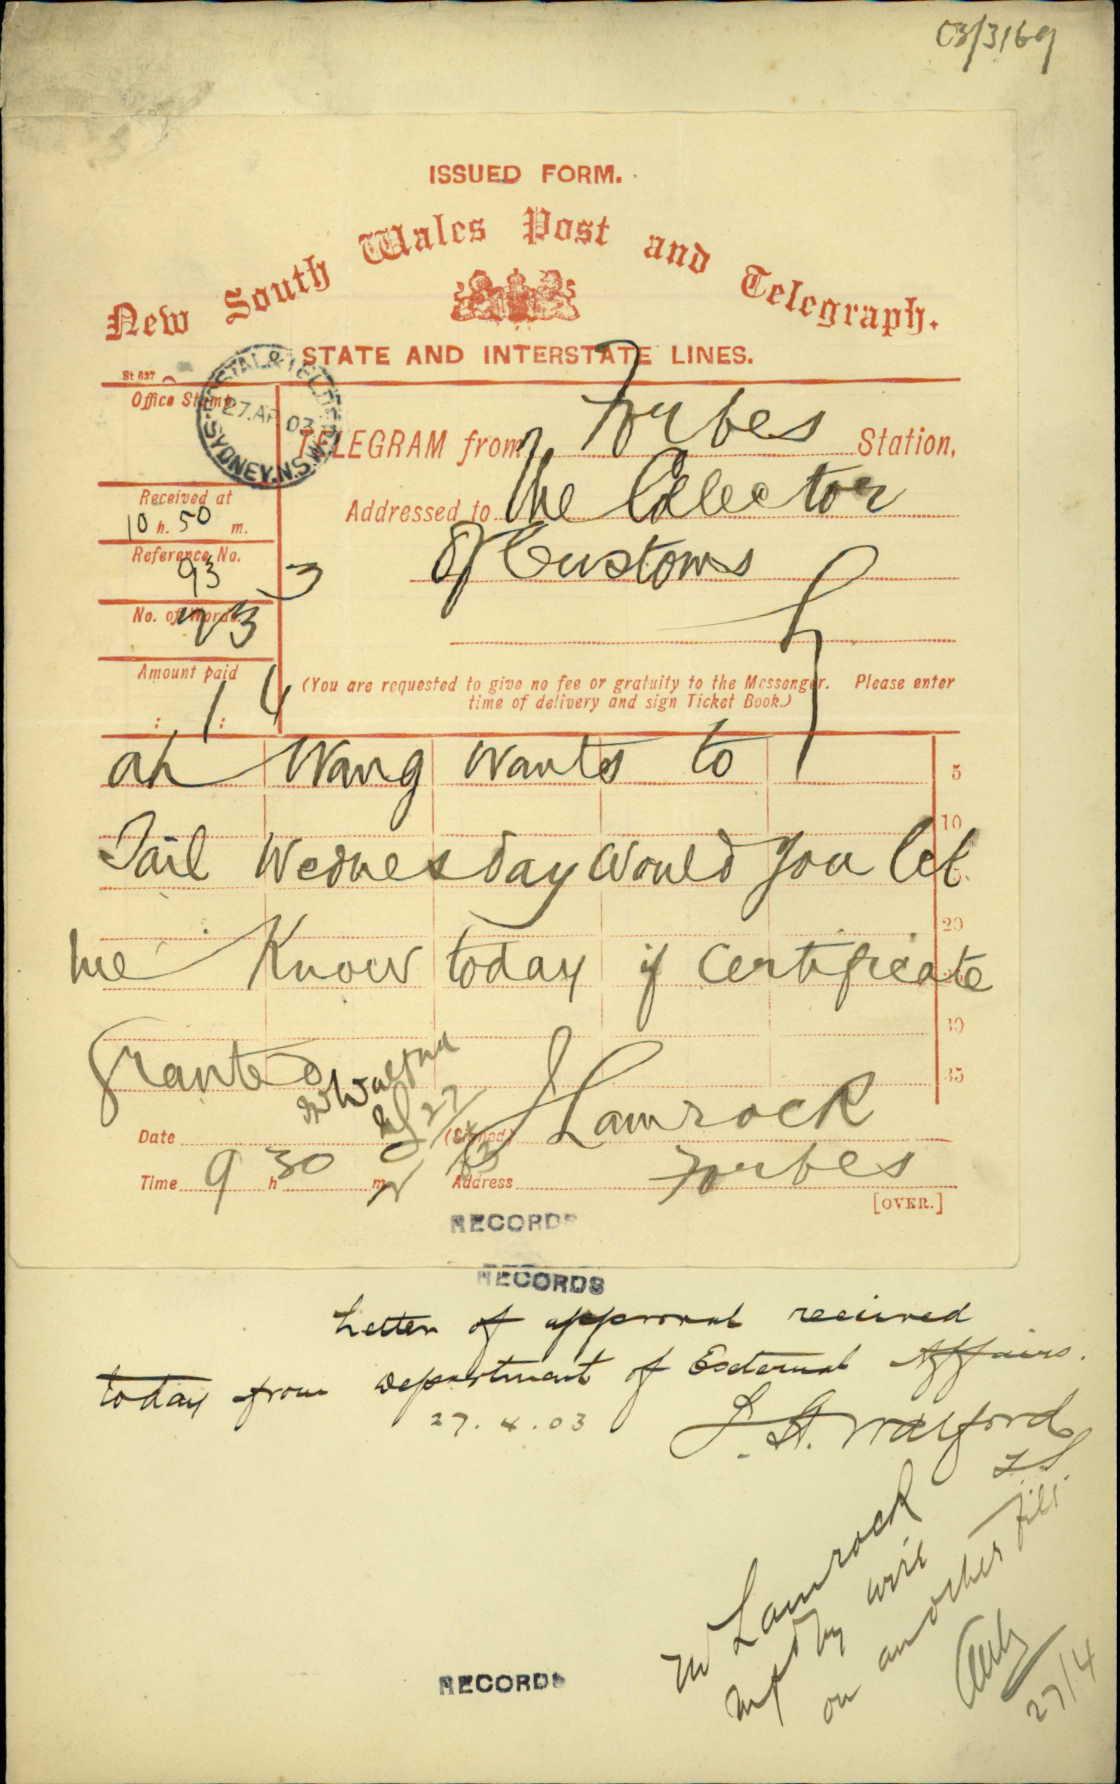 03/3169
ISSUED FORM.
New South Wales Post and Telegraph.
STATE AND INTERSTATE LINES.
St 637
Office Stamp
POSTAL & TELEGR
27.AP 03
SYDNEY.N.S.W
TELEGRAM from Forbes Station,
Received at
10 h. 50 m.
Addressed to The Collector
Reference No.
93 3
of Customs
No. of Words
23
Amount paid
: 1 : 4
(You are requested to give no fee or gratuity to the Messenger. Please enter
time of delivery and sign Ticket Book.)
ah Wang wants to
5
10
Sail Wednesday Would you let
20
me Know today if Certificate
30
granted
35
Mr Walford
27/4/03
Date
(Signed) J Lamrock
Time 9 h 30 m
Address Forbes
[OVER.]
RECORDS
RECORDS
Letter of approval received
today from Department of External Affairs.
27.4.03
L. G. Walford
Mr Lamrock
by wire
on another file
27/4
RECORDS